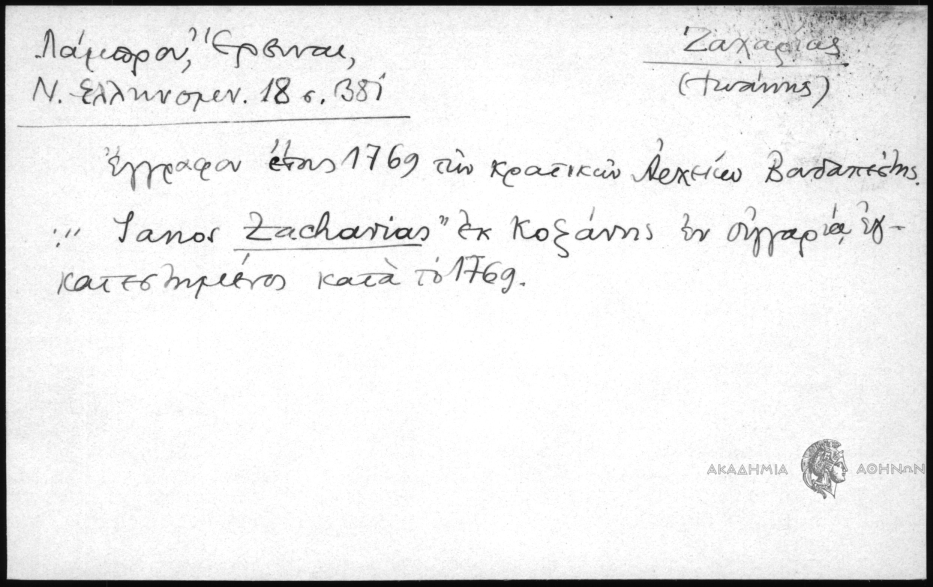 Λάμπρου, Έρευναι,
Ν. Ελληνομν. 18 σ. 381
Ζαχαρίας
(Ιωάννης)
Έγγραφον έτους 1769 των κρατικών Αρχείων Βουδαπέστης.
:" Ianos Zacharias" εκ Κοζάνης εν Ουγγαρία εγ-
κατεστημένος κατὰ τὸ 1769.
ΑΚΑΔΗΜΙΑ ΑΘΗΝΩΝ